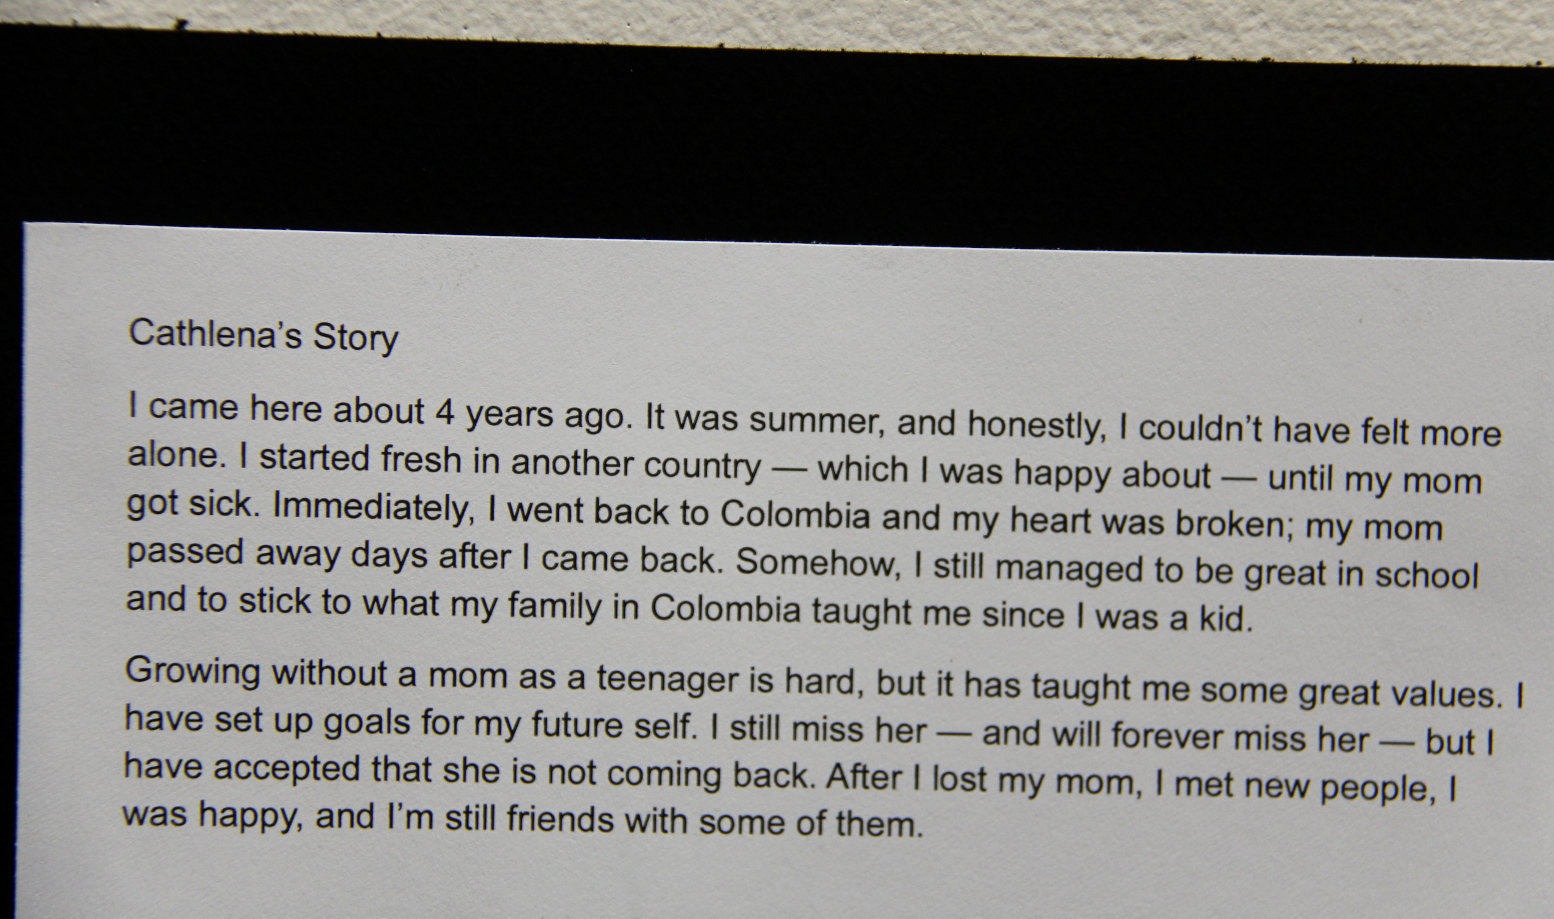 Cathlena’s Story
I came here about 4 years ago. It was summer, and honestly, I couldn’t have felt more
alone. I started fresh in another country — which I was happy about — until my mom
got sick. Immediately, I went back to Colombia and my heart was broken; my mom
passed away days after I came back. Somehow, I still managed to be great in school
and to stick to what my family in Colombia taught me since I was a kid.
Growing without a mom as a teenager is hard, but it has taught me some great values. I
have set up goals for my future self. I still miss her — and will forever miss her — but I
have accepted that she is not coming back. After I lost my mom, I met new people, I
was happy, and I’m still friends with some of them.